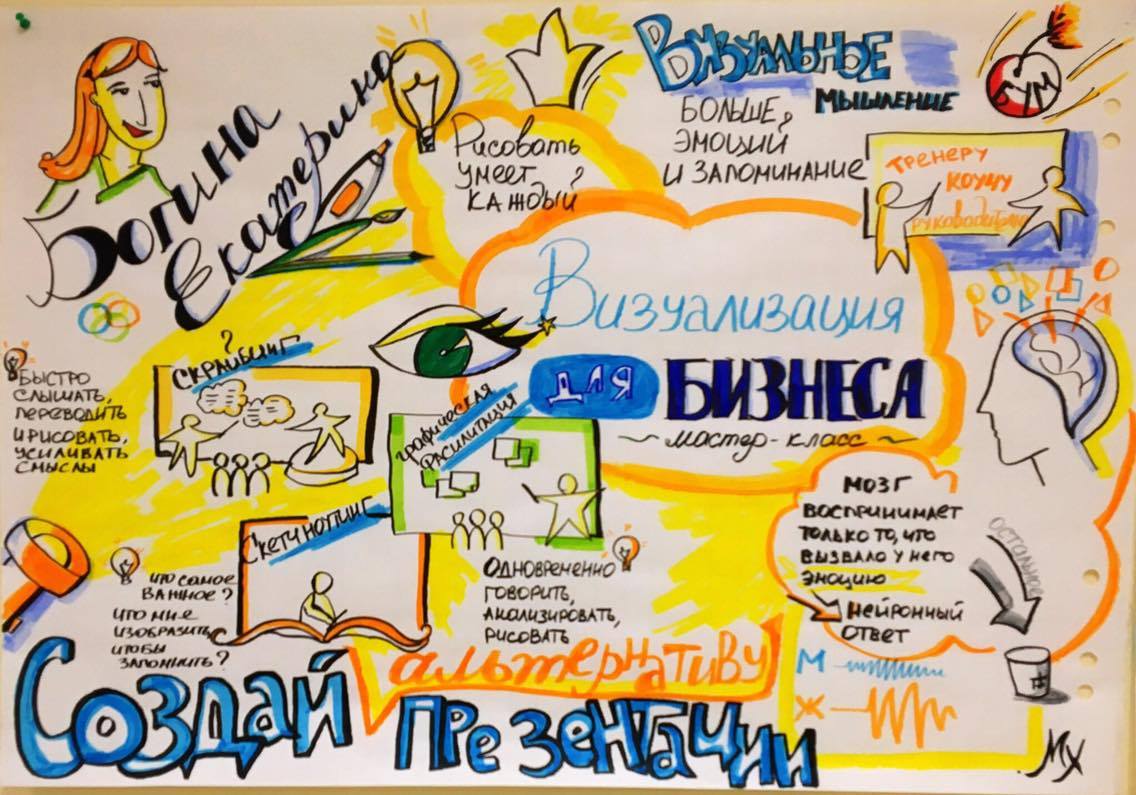 Богина
Екатерина
Рисовать
умеет
каждый
Визуальное
мышление
больше
эмоций
и запоминание
БУМ
тренеру
коучу
руководителю
Визуализация
для
БИЗНЕСА
~ мастер-класс ~
?
Скрайбинг
быстро
слышать,
переводить
и рисовать,
усиливать
смыслы
графическая
фасилитация
Одновременно
говорить,
анализировать,
рисовать
Скетчноутинг
что самое
важное?
что мне
изобразить,
чтобы
запомнить?
мозг
воспринимает
только то, что
вызвало у него
эмоцию
нейронный
ответ
остальное
М
Ж
Создай
альтернативу
презентации
МХ